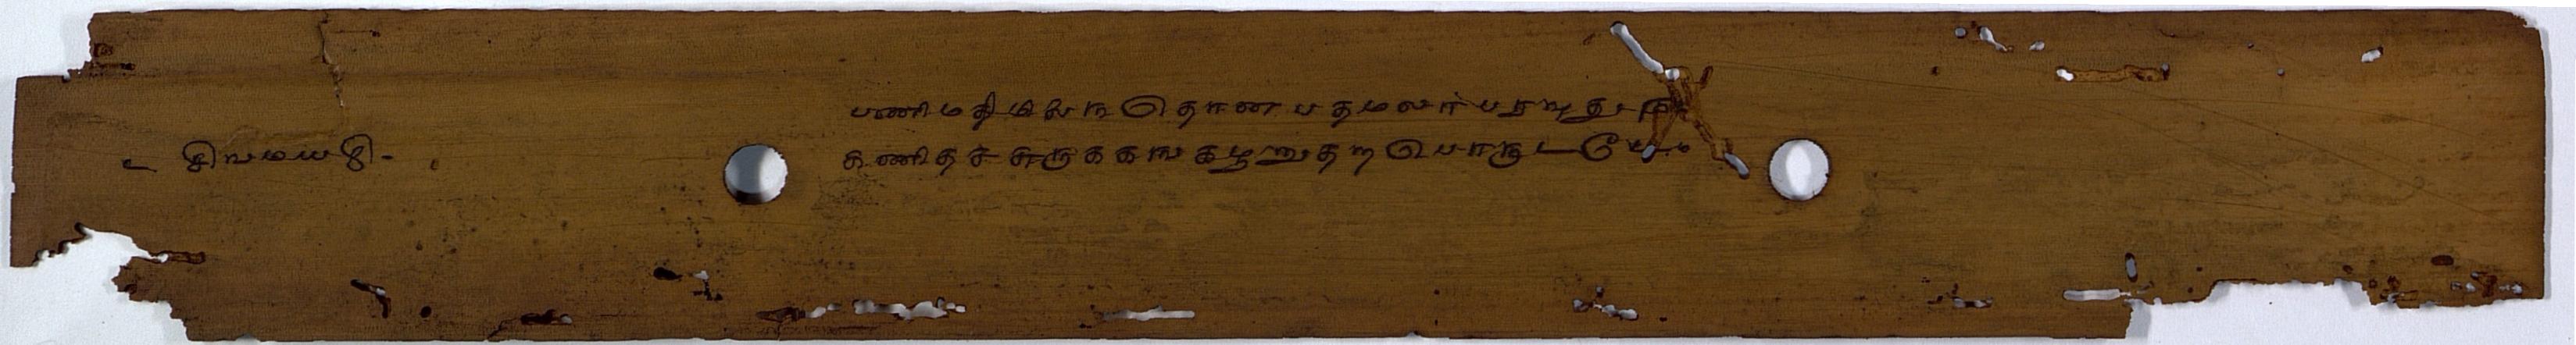 உ சிவமயம் -
பணிமதிமிலைநதொன பதமலர் பரவுதும
கணிதச சுருககங கழறுதற பொருடடே